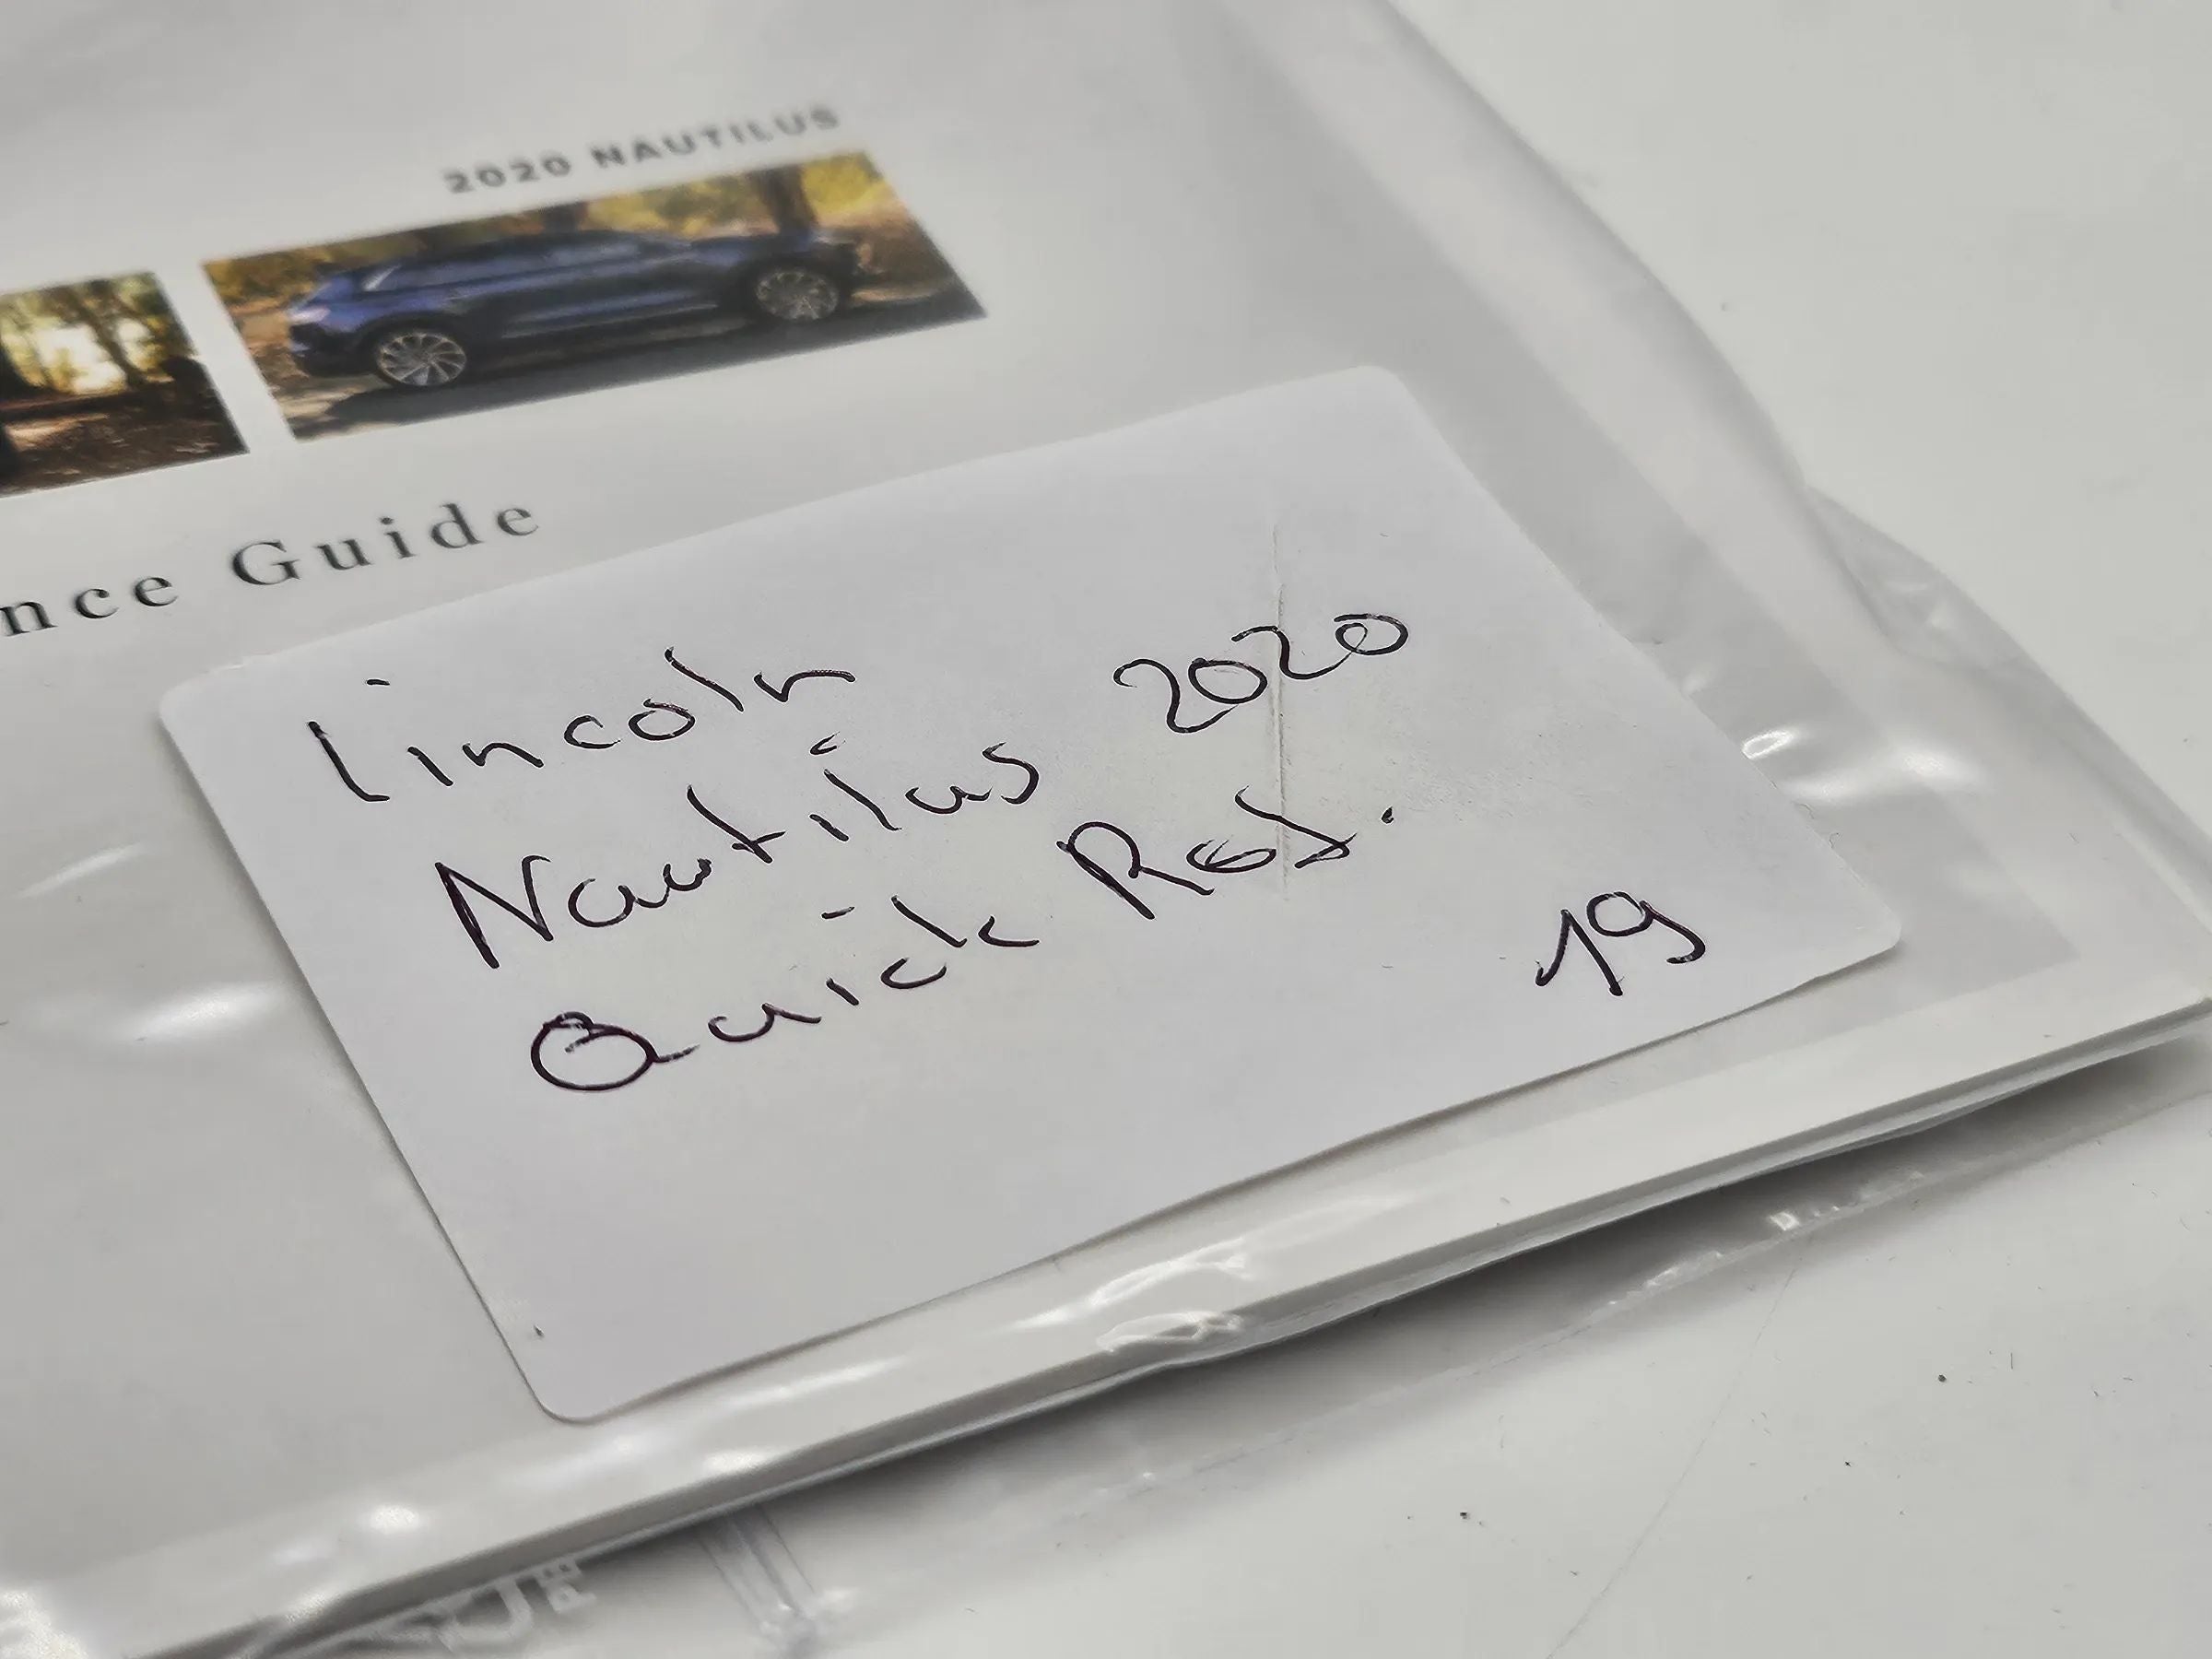 2020 NAUTILUS
nce Guide
Lincoln
Nautilus 2020
Quick Ref.
19